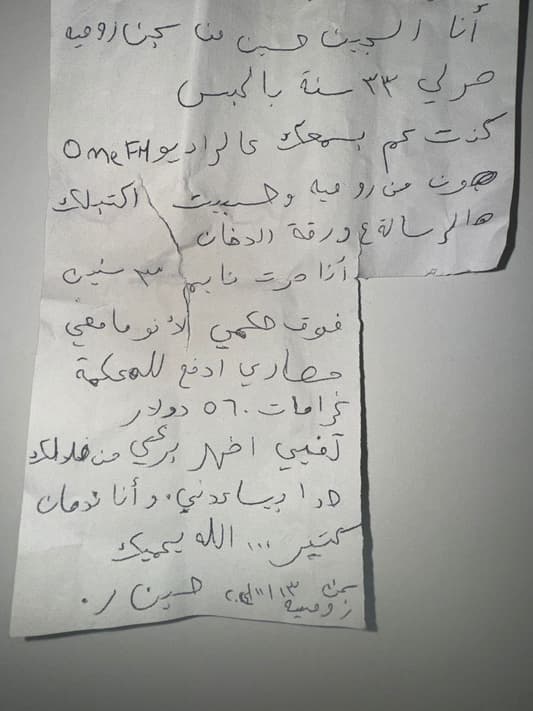 أنا السجين حسين من سجن رومية
صرلي ٣٣ سنة بالحبس
كنت عم بسمعك عالراديو OneFM
هون من رومية وحبيت اكتبلك
هالرسالة ع ورقة الدخان
أنا صرت نايم ٣ سنين
فوق حكمي لأنو ما معي
مصاري ادفع للمحكمة
غرامات ٥٦٠ دولار
تفيي اظهر برعي من خلالك
حدا بيساعدني. وأنا ندمان
كتير ... الله يحميك
سجن رومية ١٣ /١١/ حسين ر.